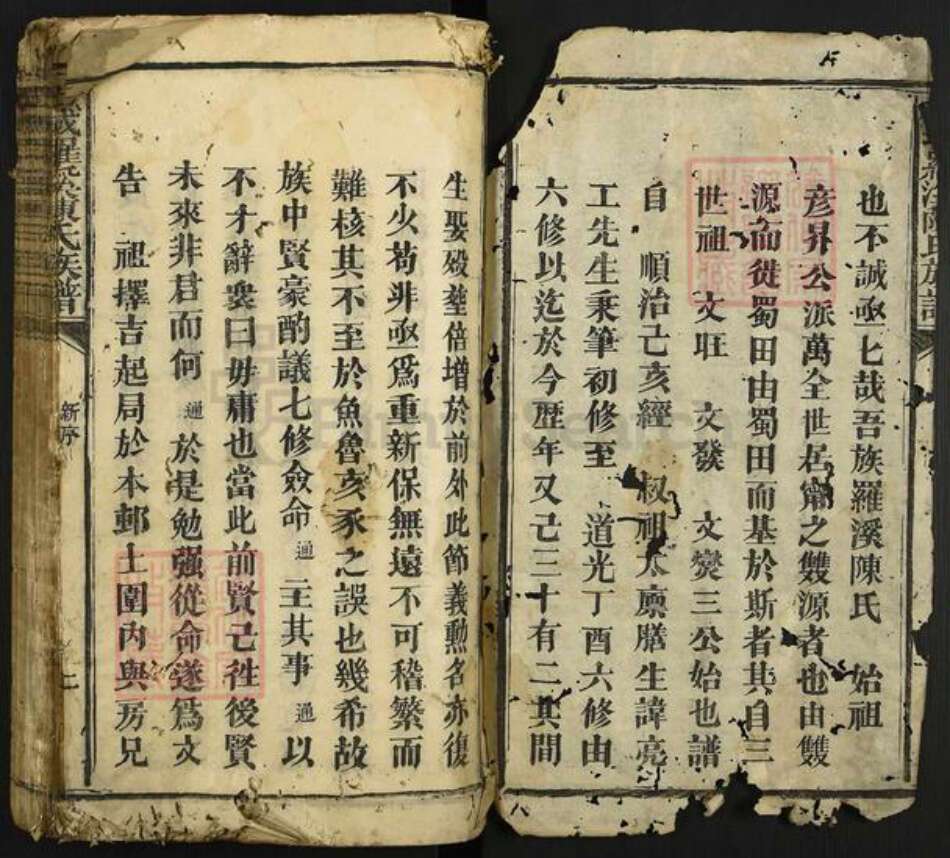 也不誠亟亟哉吾族羅溪陳氏 始祖
彥昇公派萬全世居甯之雙源者也由雙
源而徙蜀田由蜀田而基於斯者其自三
世祖 文旺 文發 文爕三公始也譜
自 順治己亥經 叔祖太廩膳生諱亮
工先生秉筆初修至 道光丁酉六修由
六修以迄於今歷年又已三十有二其間
生娶殁塟倍增於前外此節義勳名亦復
不少苟非亟爲重新保無遠不可稽繁而
難核其不至於魚魯亥豕之誤也幾希故
族中賢豪酌議七修僉命通主其事通以
不才辭衆曰毋庸也當此前賢已徃後賢
未來非君而何 通於是勉强從命遂爲文
告 祖擇吉起局於本郵土圍內與房兄
羅溪陳氏族譜
新序
二